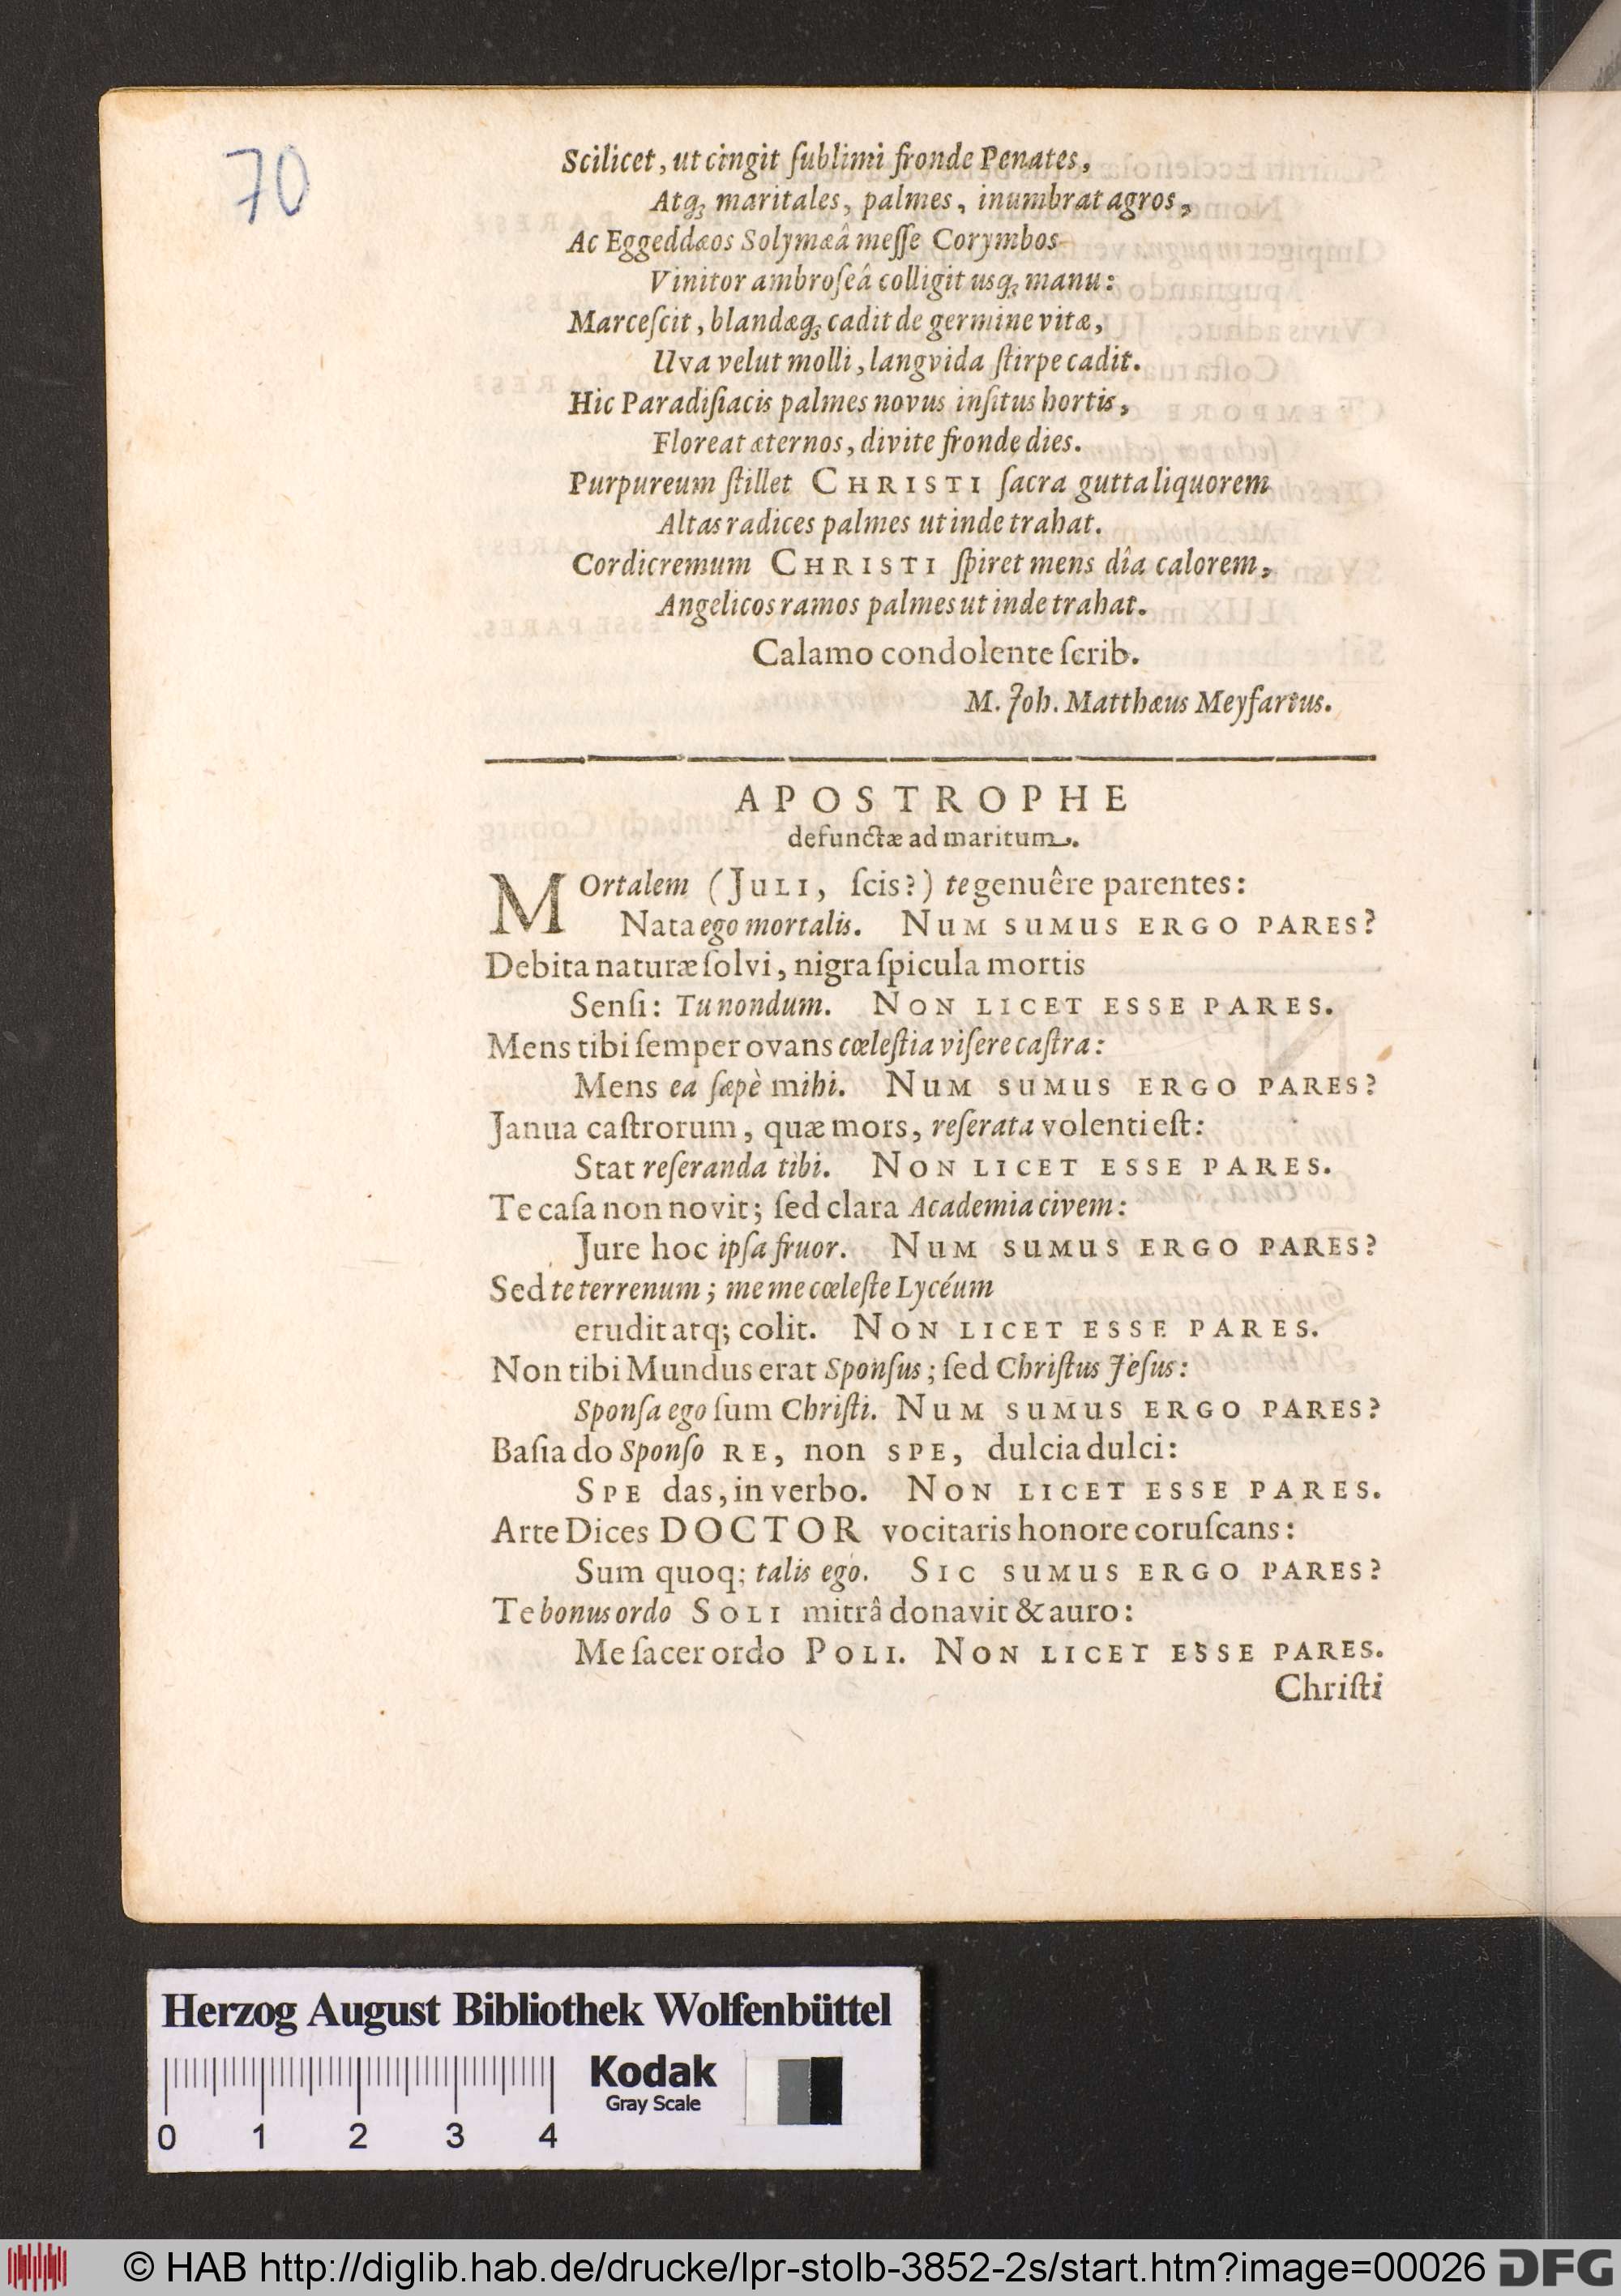 70
Scilicet, ut cingit ſublimi fronde Penates,
Atq́ꝫ maritales, palmes, inumbrat agros,
Ac Eggeddæos Solymæâ meſſe Corymbos
Vinitor ambroſeâ colligit usq́ꝫ manu:
Marceſcit, blandæq́ꝫ cadit de germine vitæ,
Uva velut molli, langvida ſtirpe cadit.
Hic Paradiſiacis palmes novus inſitus hortis,
Floreat æternos, divite fronde dies.
Purpureum ſtillet CHRISTI ſacra gutta liquorem
Altas radices palmes ut inde trahat.
Cordicremum CHRISTI ſpiret mens dîa calorem,
Angelicos ramos palmes ut inde trahat.
Calamo condolente ſcrib.
M. Joh. Matthæus Meyfartus.
APOSTROPHE
defunctæ ad maritum.
MOrtalem (JULI, ſcis?) te genuêre parentes:
Nata ego mortalis. NUM SUMUS ERGO PARES?
Debita naturæ ſolvi, nigra ſpicula mortis
Senſi: Tu nondum. NON LICET ESSE PARES.
Mens tibi ſemper ovans cœleſtia viſere caſtra:
Mens ea ſæpè mihi. NUM SUMUS ERGO PARES?
Janua caſtrorum, quæ mors, reſerata volenti eſt:
Stat reſeranda tibi. NON LICET ESSE PARES.
Te caſa non novit; ſed clara Academia civem:
Jure hoc ipſa fruor. NUM SUMUS ERGO PARES?
Sed te terrenum; me me cœleſte Lycéum
erudit atq; colit. NON LICET ESSE PARES.
Non tibi Mundus erat Sponſus; ſed Chriſtus Jeſus:
Sponſa ego ſum Chriſti. NUM SUMUS ERGO PARES?
Baſia do Sponſo RE, non SPE, dulcia dulci:
SPE das, in verbo. NON LICET ESSE PARES.
Arte Dices DOCTOR vocitaris honore coruſcans:
Sum quoq; talis ego. SIC SUMUS ERGO PARES?
Te bonus ordo SOLI mitrâ donavit & auro:
Me ſacer ordo POLI. NON LICET ESSE PARES.
Chriſti
Herzog August Bibliothek Wolfenbüttel
Kodak
Gray Scale
0 1 2 3 4
© HAB http://diglib.hab.de/drucke/lpr-stolb-3852-2s/start.htm?image=00026 DFG